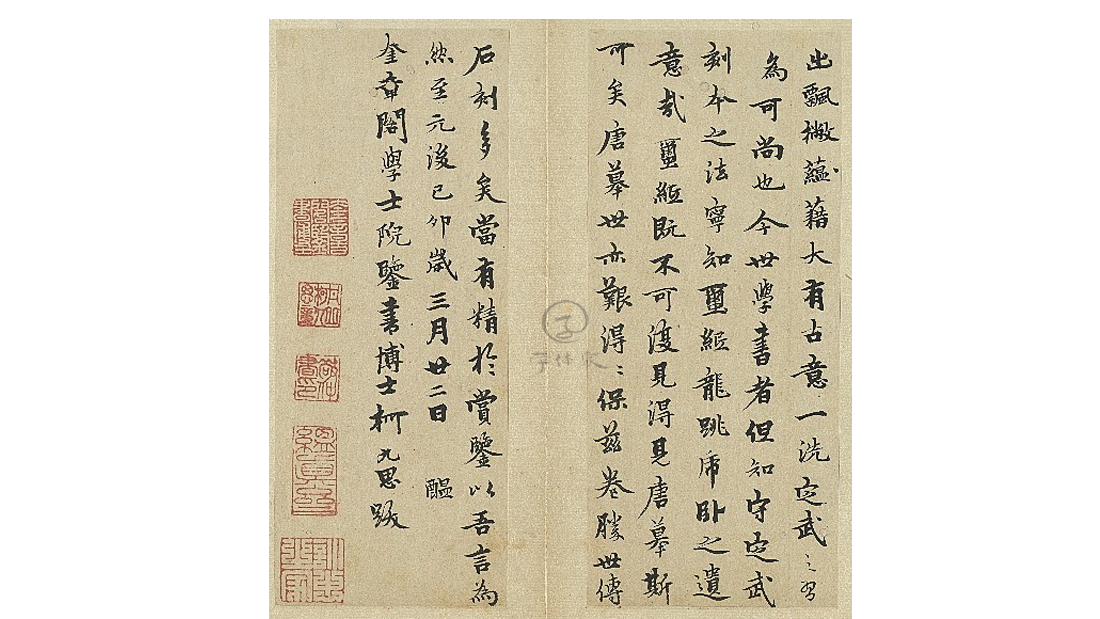 出飄撇蘊藉大有古意一洗定武之習
為可尚也今世學書者但知守定武
刻本之法寧知璽紙龍跳虎臥之遺
意哉璽紙既不可復見得見唐摹斯
可矣唐摹世亦艱得〻保茲卷勝世傳
石刻多矣當有精於賞鑒以吾言為
然至元後己卯歲三月廿二日 醖
奎章閣學士院鑒書博士柯九思跋
敬仲書印
縕真齋
訓忠之家
字
字体家